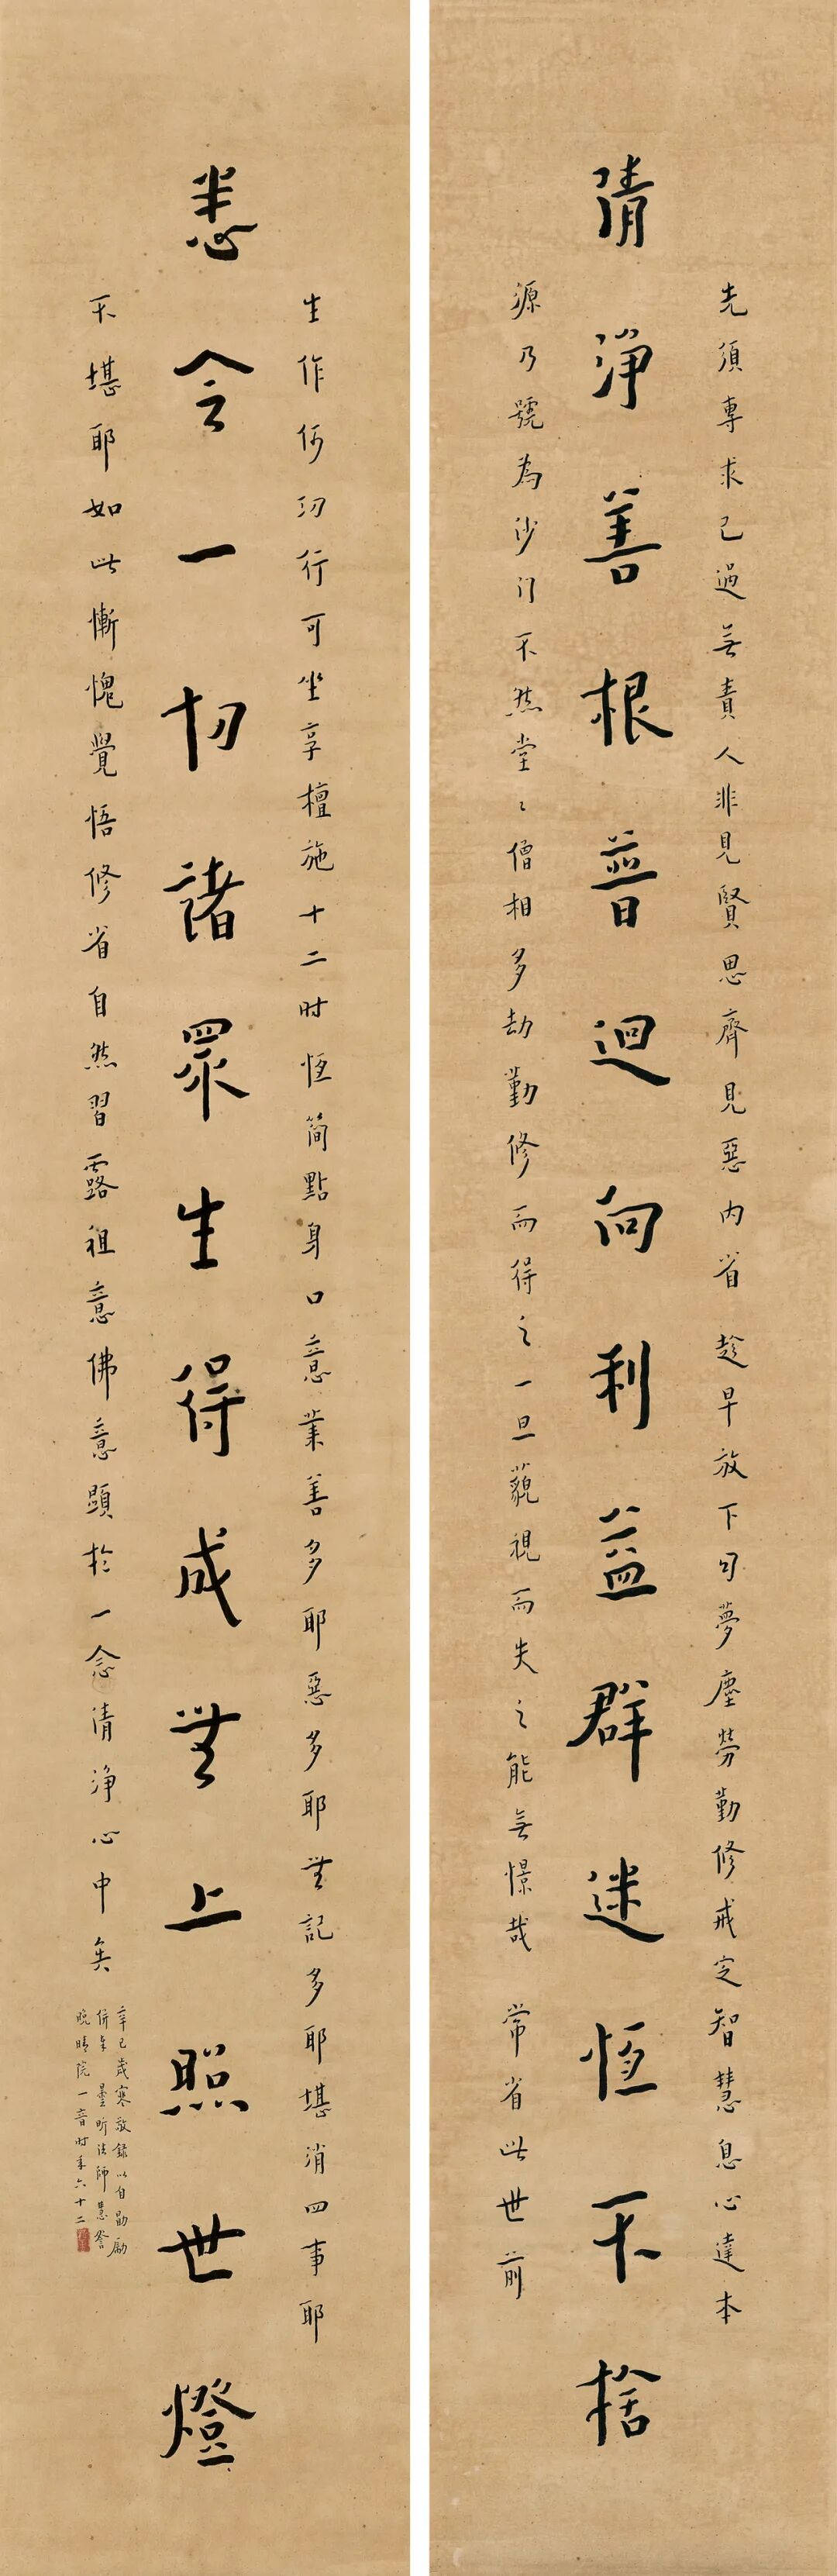 先須專求己過無責人非見賢思齊見惡内省趁早放下幻夢塵勞勤修戒定智慧息心達本
清淨善根普迴向利益群迷恆不捨
源乃號為沙門不然堂〻僧相多劫勤修而得之一旦藐視而失之能無憬哉常省此世前
生作何功行可坐享檀施十二时恆簡點身口意業善多耶惡多耶無記多耶堪消四事耶
悉令一切諸眾生得成無上照世燈
不堪耶如此慚愧覺悟修省自然習露祖意佛意顯於一念清淨心中矣
辛巳歲寒敬錄以自勖勵
併奉 曇昕法師慧詧
晚晴院一音时年六十二